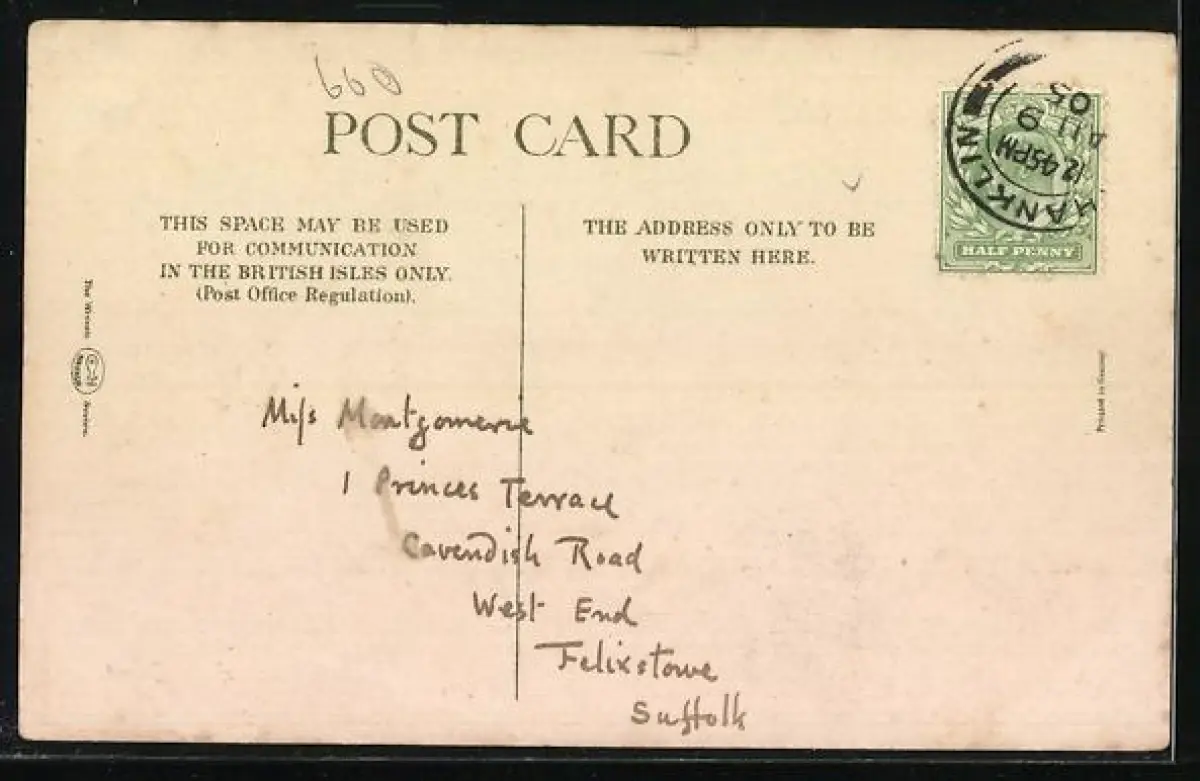 660
POST CARD
THIS SPACE MAY BE USED
FOR COMMUNICATION
IN THE BRITISH ISLES ONLY.
(Post Office Regulation).
THE ADDRESS ONLY TO BE
WRITTEN HERE.
HANKLIN
12.45PM
9
AU
05
HALF PENNY
The Wrench
Series.
Printed in
Miss Montgomerie
1 Princes Terrace
Cavendish Road
West End
Felixstowe
Suffolk